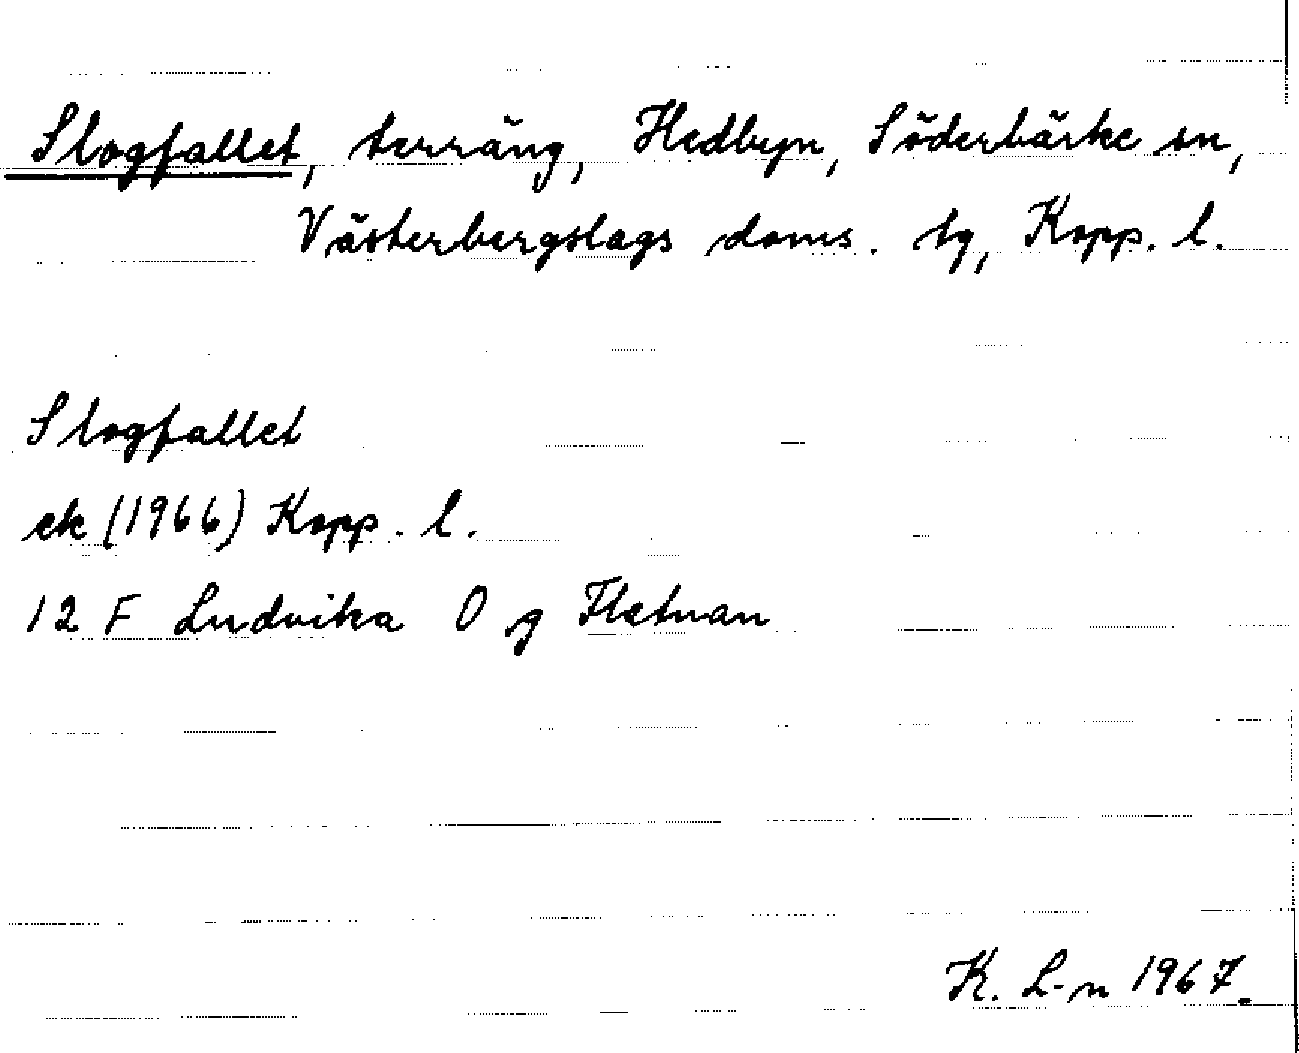 Slogfallet, terräng, Hedbyn, Söderbärke sn,
Västerbergslags doms. tg, Kopp. l.
Slogfallet
ek (1966) Kopp. l.
12 F Ludvika O g Flatnan
K. L-n 1967.